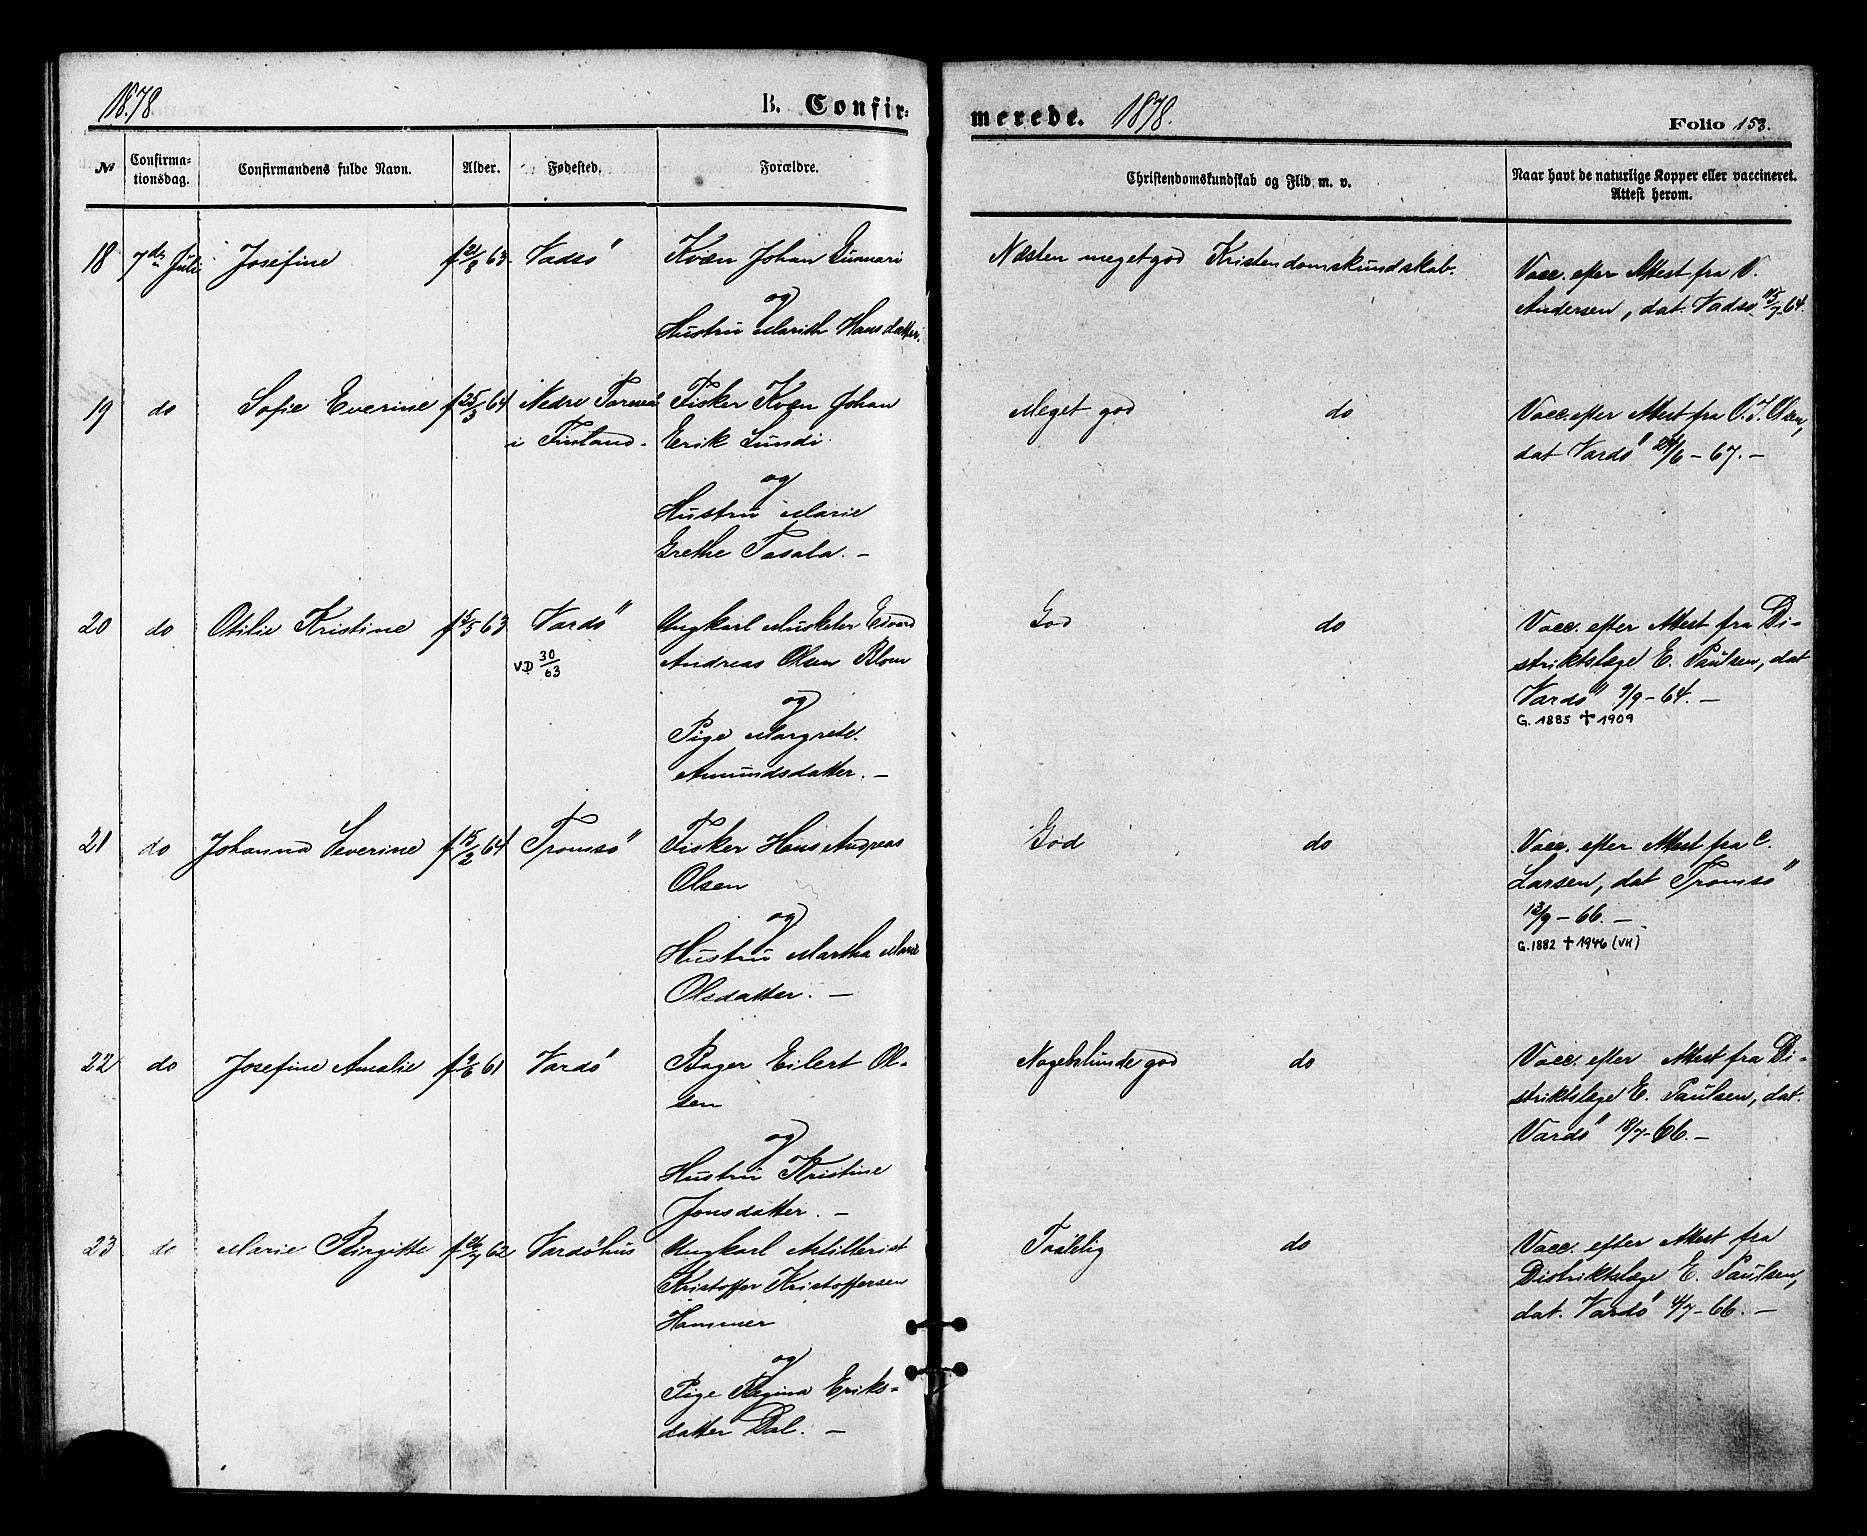 1878
B. Confir-
merede. 1878.
Folio 153.
№
Confirma-
tionsdag.
Confirmandens fulde Navn.
Alder.
Fødested.
Forældre.
Christendomskundskab og Flid m. v.
Naar havt de naturlige Kopper eller vaccineret.
Attest herom.
18 7de Juli Josefine 63 Vadsö Kvæn Johan
og
Hustru Marith Hansdatter.
Næsten meget god Kristendomskundskab.
Vacc. efter Attest fra V.
Andersen, dat. Vadsö 15/7 64.
19 do Sofie Everine f 25/3 64 Nedre Torneå Fisker Kvæn Johan
i Finland. Erik Lundi
og
Hustru Marie
Grethe Tasala. –
Meget god do
Vacc. efter Attest fra O. J. Olsen,
dat Vardö 24/6 – 67. –
20 do Otilie Kristine 63 Vardö Ungkarl Musketer Edvard
VD 30/63 Andreas Olsen Blom
og
Pige Margrete
Amundsdatter. –
God do
Vacc. efter Attest fra Di-
striktslæge E. Paulsen, dat
Vardö 9/9 – 64. –
G. 1885 ✝ 1909
21 do Johanna Severine f 15/2 64 Tromsö Fisker Hans Andreas
Olsen
og
Hustru Martha Marie
Olsdatter. –
God do
Vacc. efter Attest fra C.
Larsen, dat Tromsö
13/9 – 66. –
G. 1882 ✝ 1946 (VH)
22 do Josefine Amalie 61 Vardö Bager Eilert Ol-
sen
og
Hustru Kristine
Jonsdatter. –
Nogenlunde god do
Vacc. efter Attest fra Di-
striktslæge E. Paulsen, dat.
Vardö 18/7 – 66. –
23 do Marie Birgitte f 26/7 62 Vardöhus Ungkarl Artillerist
Kristoffer Kristoffersen
Hammer
og
Pige Regina Eriks-
datter Dal. –
Taalelig do
Vacc. efter Attest fra
Distriktslæge E. Paulsen,
dat. Vardö 4/7 – 66. –